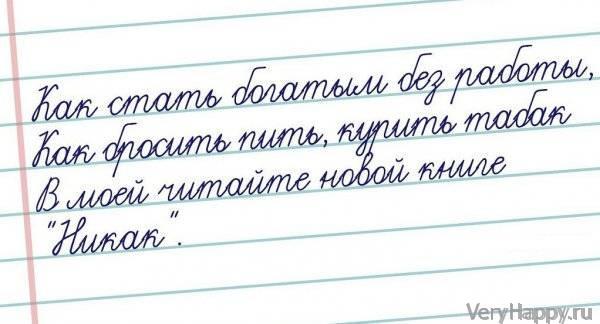 Как стать богатым без работы,
Как бросить пить, курить табак
В моей читайте новой книге
"Никак".
VeryHappy.ru